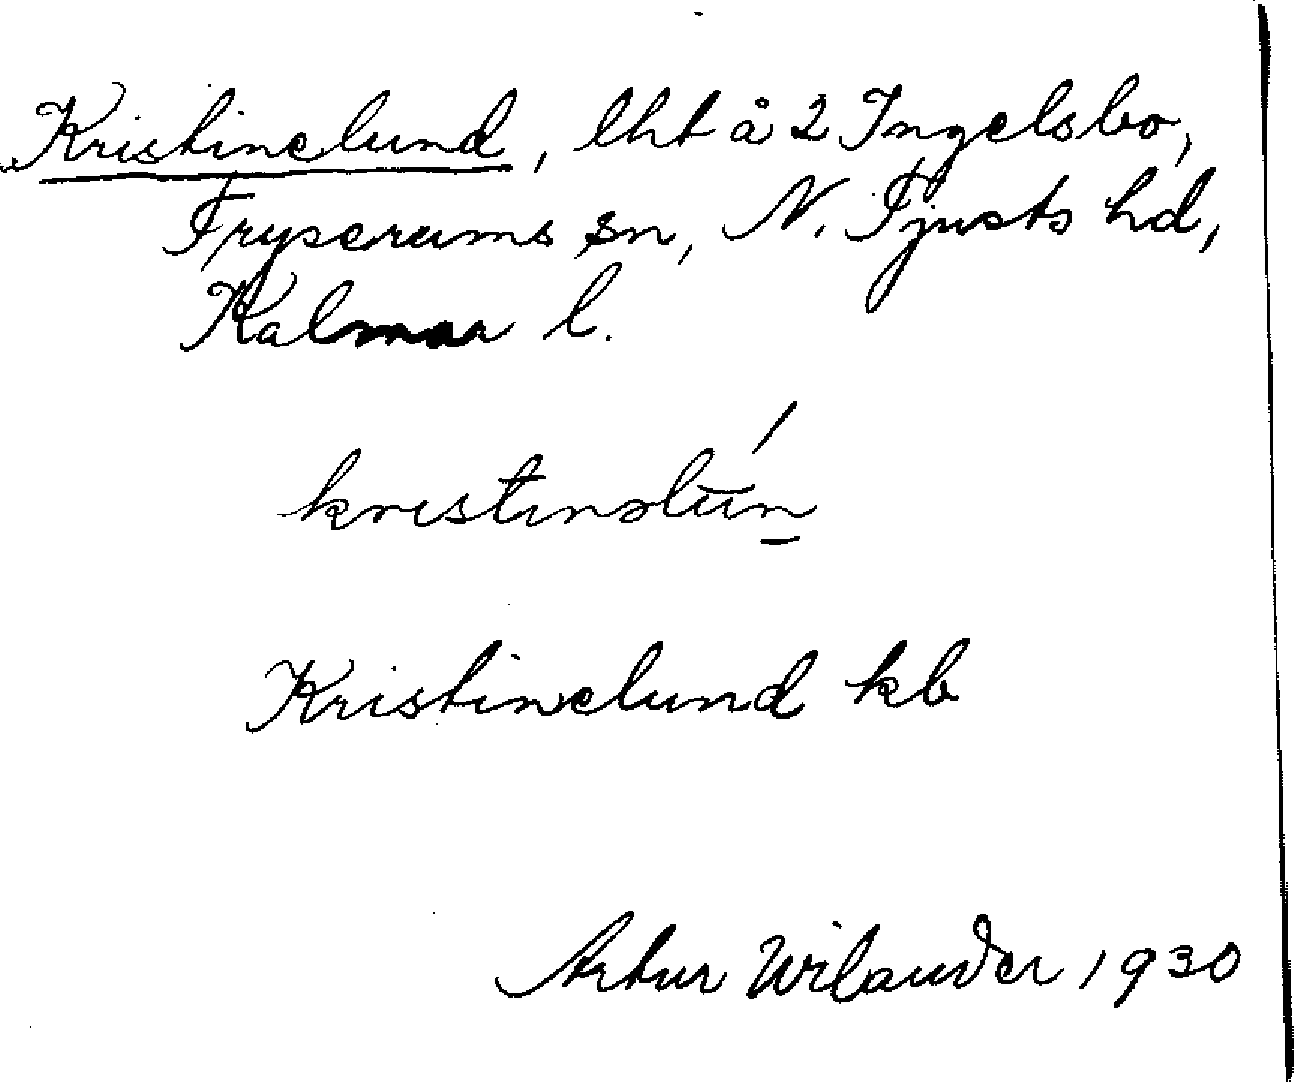 Kristinelund, lht å 2 Ingelsbo,
Tryserums sn, N. Tjusts hd,
Kalmar l.
kristinəluń̲
Kristinelund kb
Artur Wilander 1930